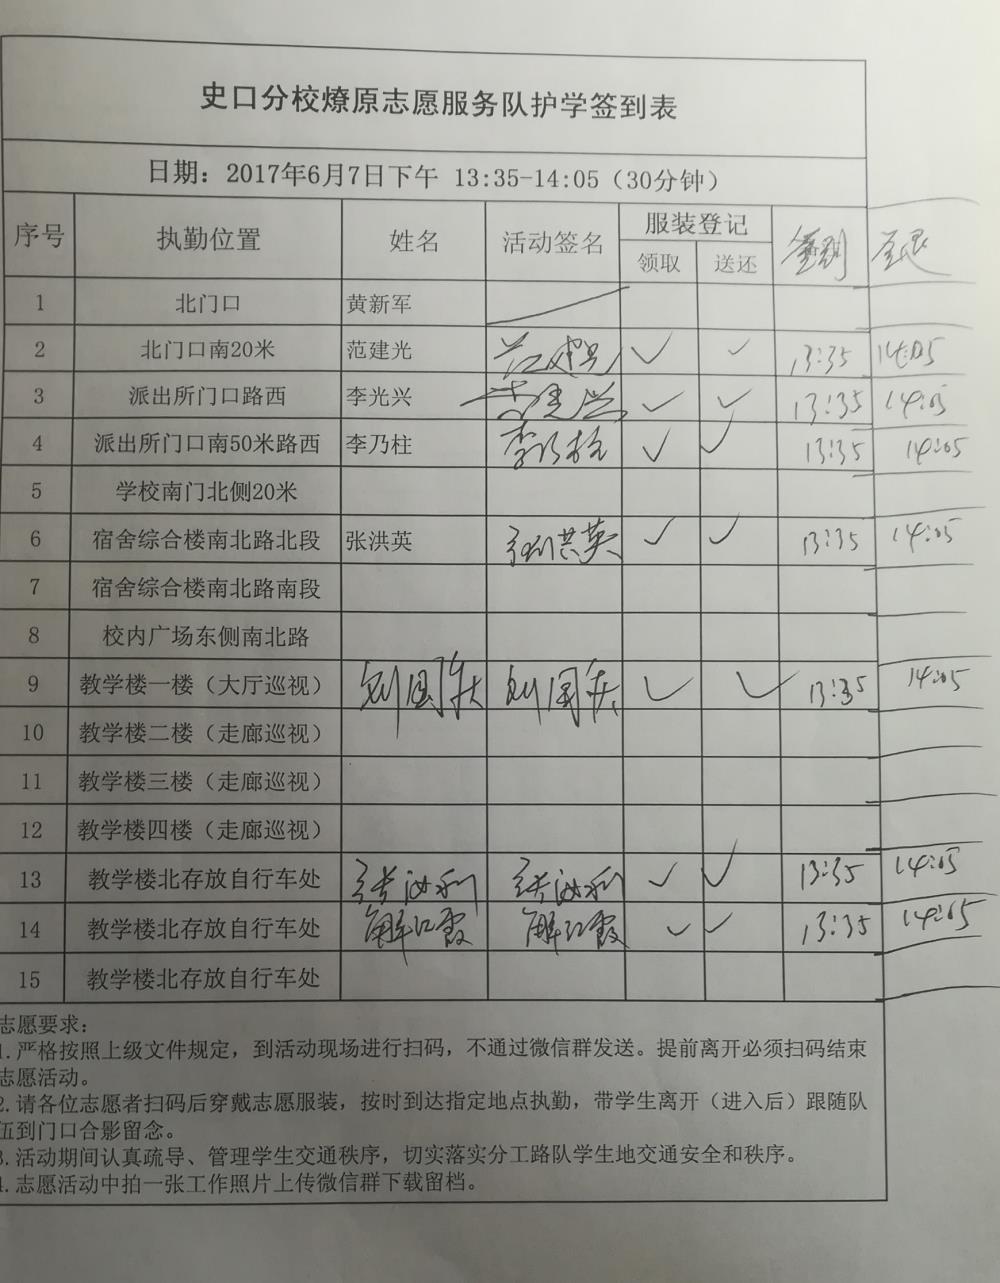 史口分校燎原志愿服务队护学签到表
日期：2017年6月7日下午 13:35-14:05（30分钟）
序号 执勤位置 姓名 活动签名 服装登记 签到 签退
领取 送还
1 北门口 黄新军
2 北门口南20米 范建光 范建光 ✓ ✓ 13:35 14:05
3 派出所门口路西 李光兴 ✓ ✓ 13:35 14:05
4 派出所门口南50米路西 李乃柱 李乃柱 ✓ ✓ 13:35 14:05
5 学校南门北侧20米
6 宿舍综合楼南北路北段 张洪英 张洪英 ✓ ✓ 13:35 14:05
7 宿舍综合楼南北路南段
8 校内广场东侧南北路
9 教学楼一楼（大厅巡视） 刘国庆 刘国庆 ✓ ✓ 13:35 14:05
10 教学楼二楼（走廊巡视）
11 教学楼三楼（走廊巡视）
12 教学楼四楼（走廊巡视）
13 教学楼北存放自行车处 张汝利 张汝利 ✓ ✓ 13:35 14:05
14 教学楼北存放自行车处 解红霞 解红霞 ✓ ✓ 13:35 14:05
15 教学楼北存放自行车处
志愿要求：
1.严格按照上级文件规定，到活动现场进行扫码，不通过微信群发送。提前离开必须扫码结束
志愿活动。
2.请各位志愿者扫码后穿戴志愿服装，按时到达指定地点执勤，带学生离开（进入后）跟随队
伍到门口合影留念。
3.活动期间认真疏导、管理学生交通秩序，切实落实分工路队学生地交通安全和秩序。
4.志愿活动中拍一张工作照片上传微信群下载留档。